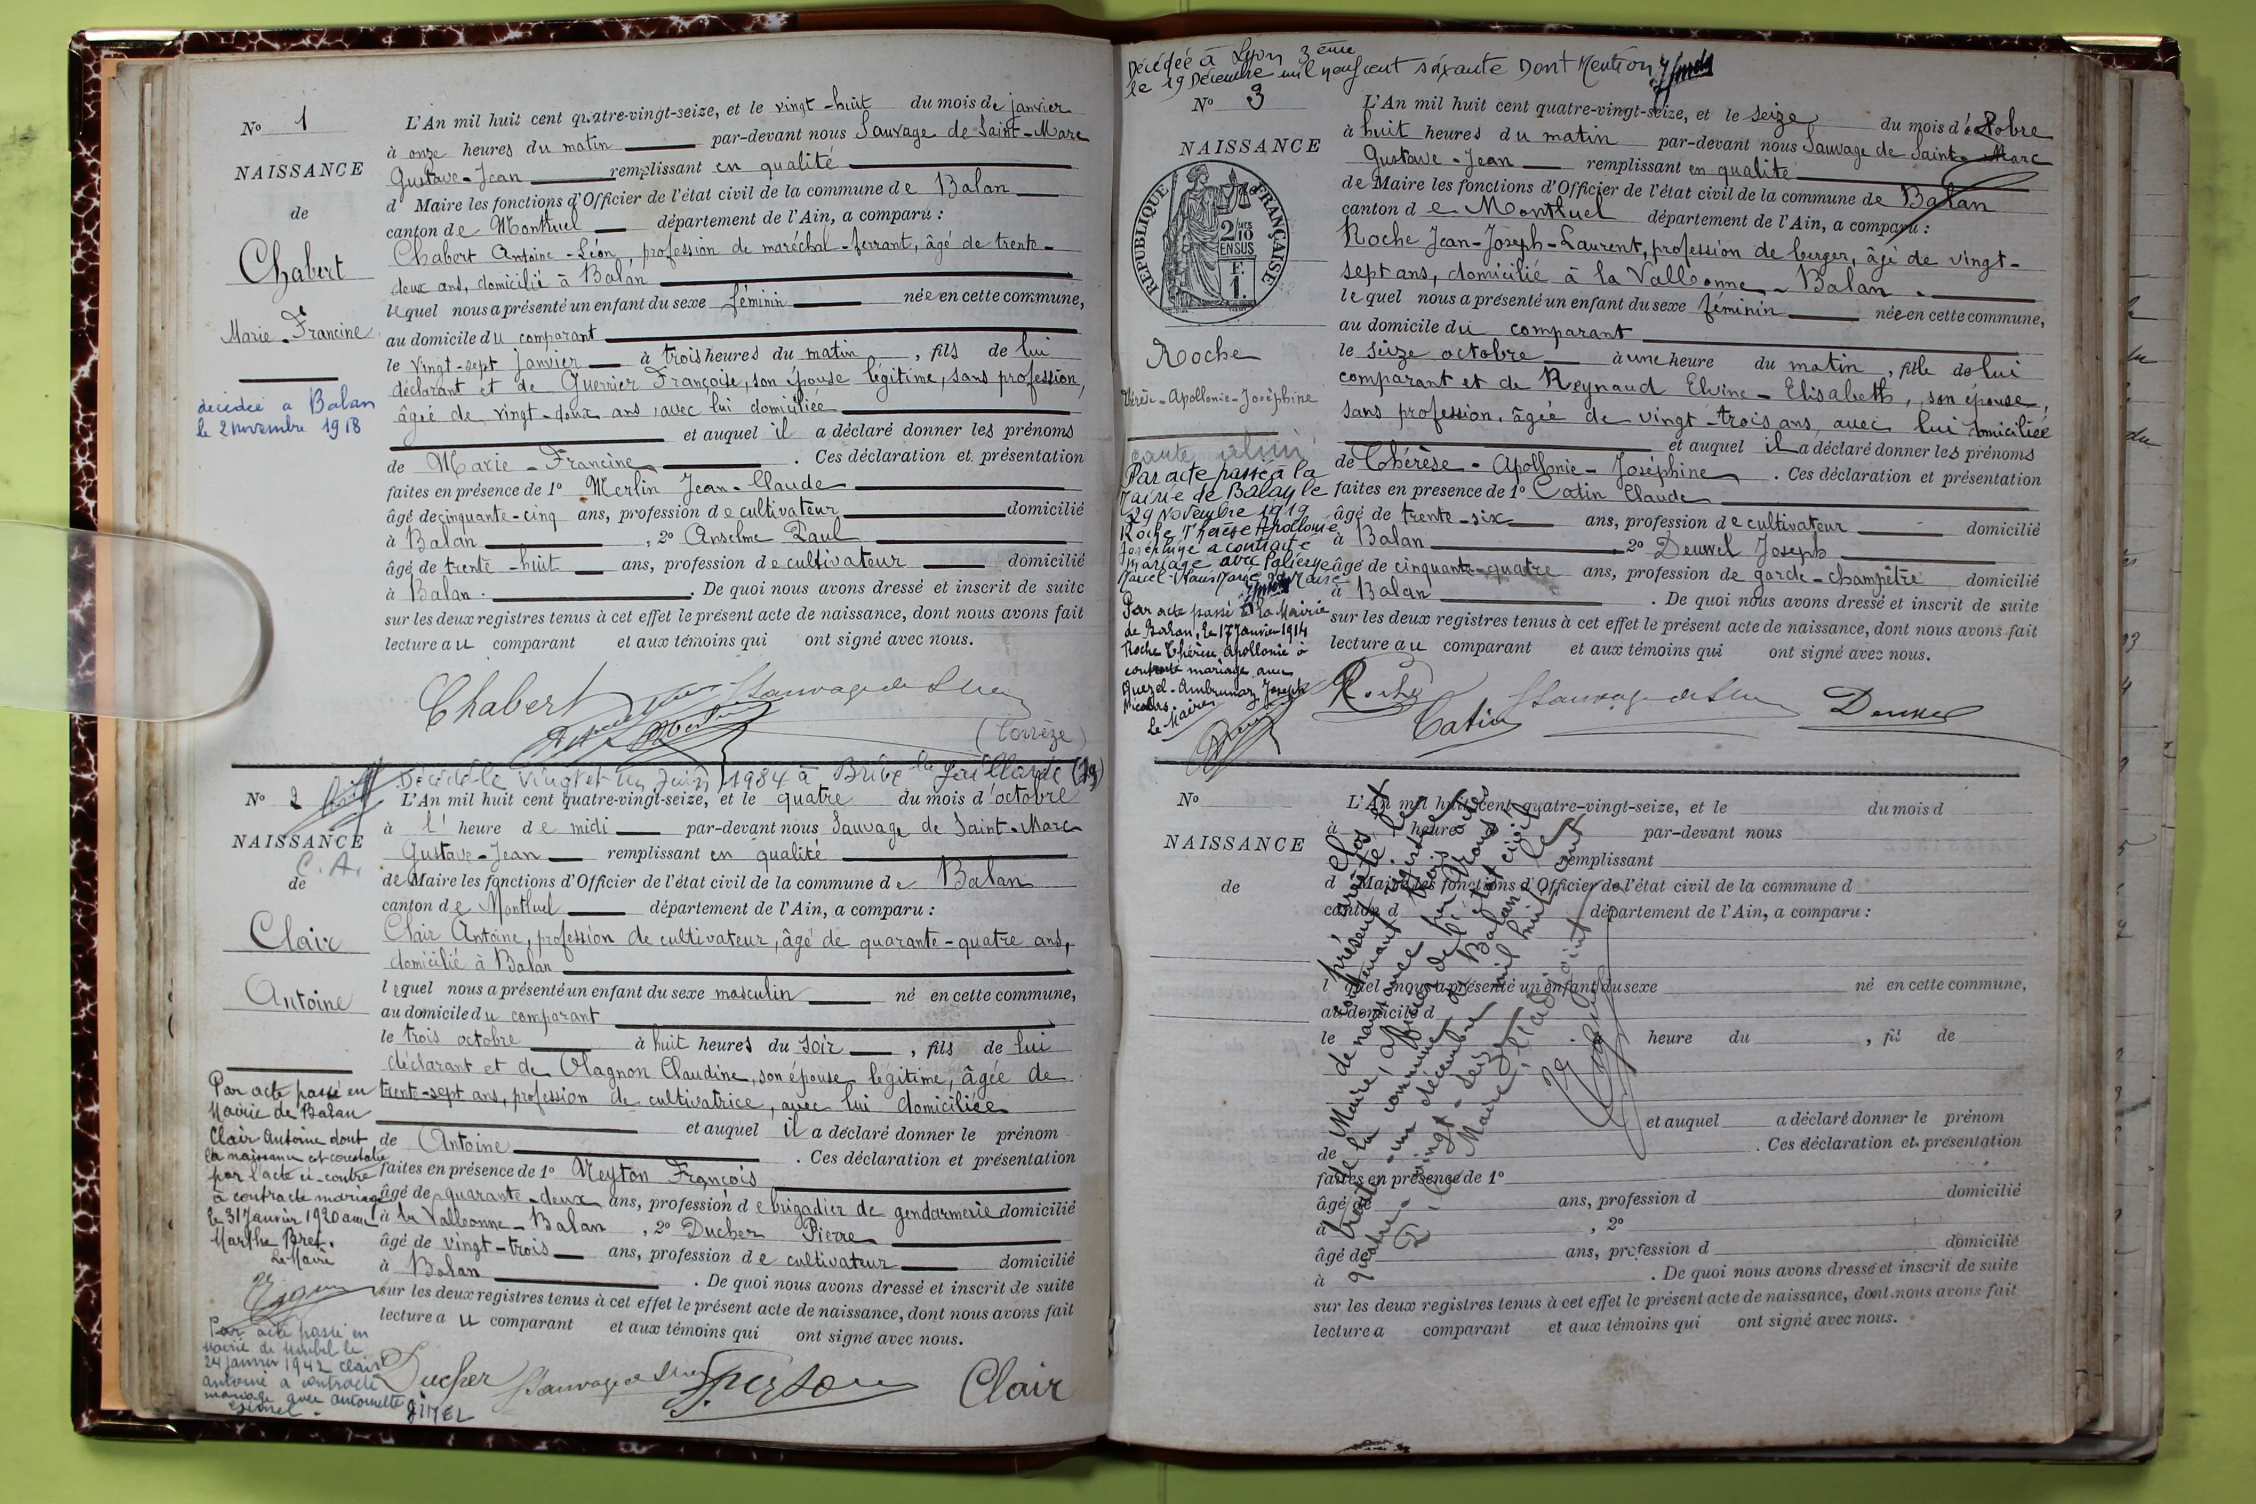 N° 1
NAISSANCE
de
Chabert
Marie-Francine
décédée a Balan
le 2 novembre 1918
L'An mil huit cent quatre-vingt-seize, et le vingt-huit du mois de janvier
à onze heures du matin par-devant nous Sauvage de Saint-Marc
Gustave-Jean remplissant en qualité
d Maire les fonctions d'Officier de l'état civil de la commune de Balan
canton de Montluel département de l'Ain, a comparu :
Chabert Antoine-Léon, profession de maréchal-ferrant, âgé de trente-
deux ans, domicilié à Balan
lequel nous a présenté un enfant du sexe féminin née en cette commune,
au domicile du comparant
le vingt-sept janvier à trois heures du matin, fils de lui
déclarant et de Guerrier Françoise, son épouse légitime, sans profession,
âgée de vingt-deux ans, avec lui domiciliée
et auquel il a déclaré donner les prénoms
de Marie-Francine. Ces déclaration et présentation
faites en présence de 1° Merlin Jean-Claude
âgé de cinquante-cinq ans, profession de cultivateur domicilié
à Balan, 2° Anselme Paul
âgé de trente-huit ans, profession de cultivateur domicilié
à Balan. De quoi nous avons dressé et inscrit de suite
sur les deux registres tenus à cet effet le présent acte de naissance, dont nous avons fait
lecture au comparant et aux témoins qui ont signé avec nous.
Chabert Sauvage de St Marc
(Corrèze)
Décédé le vingt et un Juin 1984 à Brive la Gaillarde (19)
N° 2
NAISSANCE
C. A.
de
Clair
Antoine
Par acte passé en
Mairie de Balan
Clair Antoine dont
la naissance est constatée
par l'acte ci-contre
a contracté mariage
le 31 Janvier 1920 avec
Marthe Bret.
Le Maire
Par acte passé en
mairie de Miribel le
24 janvier 1942 Clair
Antoine a contracté
mariage avec Antoinette
Gimel. GIMEL
L'An mil huit cent quatre-vingt-seize, et le quatre du mois d'octobre
à l' heure de midi par-devant nous Sauvage de Saint-Marc
Gustave-Jean remplissant en qualité
de Maire les fonctions d'Officier de l'état civil de la commune de Balan
canton de Montluel département de l'Ain, a comparu :
Clair Antoine, profession de cultivateur, âgé de quarante-quatre ans,
domicilié à Balan
lequel nous a présenté un enfant du sexe masculin né en cette commune,
au domicile du comparant
le trois octobre à huit heures du soir, fils de lui
déclarant et de Olagnon Claudine, son épouse légitime, âgée de
trente-sept ans, profession de cultivatrice, avec lui domiciliée
et auquel il a déclaré donner le prénom
de Antoine. Ces déclaration et présentation
faites en présence de 1° Neyton François
âgé de quarante-deux ans, profession de brigadier de gendarmerie domicilié
à la Valbonne-Balan, 2° Ducher Pierre
âgé de vingt-trois ans, profession de cultivateur domicilié
à Balan. De quoi nous avons dressé et inscrit de suite
sur les deux registres tenus à cet effet le présent acte de naissance, dont nous avons fait
lecture au comparant et aux témoins qui ont signé avec nous.
Ducher Sauvage de St Marc Clair
Décédée à Lyon 3ème
le 19 Décembre mil neuf cent soixante Dont Mention
N° 3
NAISSANCE
RÉPUBLIQUE FRANÇAISE
2/10
EN SUS
F.
1.
Roche
Thérèse-Apollonie-Joséphine
Par acte passé à la
Mairie de Balan le
29 Novembre 1919
Roche Thérèse Apollonie
Joséphine a contracté
mariage avec
Par acte passé à la Mairie
de Balan, le 17 Janvier 1914
Roche Thérèse Apollonie à
contracté mariage avec
Quezel-Ambrunaz Joseph
Nicolas.
Le Maire
L'An mil huit cent quatre-vingt-seize, et le seize du mois d'octobre
à huit heures du matin par-devant nous Sauvage de Saint-Marc
Gustave-Jean remplissant en qualité
de Maire les fonctions d'Officier de l'état civil de la commune de Balan
canton de Montluel département de l'Ain, a comparu :
Roche Jean-Joseph-Laurent, profession de berger, âgé de vingt-
sept ans, domicilié à la Valbonne-Balan.
lequel nous a présenté un enfant du sexe féminin née en cette commune,
au domicile du comparant
le seize octobre à une heure du matin, fille de lui
comparant et de Reynaud Elvine-Elisabeth, son épouse,
sans profession, âgée de vingt-trois ans, avec lui domiciliée
et auquel il a déclaré donner les prénoms
de Thérèse-Apollonie-Joséphine. Ces déclaration et présentation
faites en présence de 1° Catin Claude
âgé de trente-six ans, profession de cultivateur domicilié
à Balan 2° Deuwel Joseph
âgé de cinquante-quatre ans, profession de garde-champêtre domicilié
à Balan. De quoi nous avons dressé et inscrit de suite
sur les deux registres tenus à cet effet le présent acte de naissance, dont nous avons fait
lecture au comparant et aux témoins qui ont signé avec nous.
Roche Catin Sauvage de St Marc Deuwel
N°
NAISSANCE
de
L'An mil huit cent quatre-vingt-seize, et le du mois d
à heure d par-devant nous
remplissant
d Maire les fonctions d'Officier de l'état civil de la commune d
canton d département de l'Ain, a comparu :
l quel nous a présenté un enfant du sexe né en cette commune,
au domicile d
le heure du , fil de
et auquel a déclaré donner le prénom
de . Ces déclaration et présentation
faites en présence de 1°
âgé de ans, profession d domicilié
à , 2°
âgé de ans, profession d domicilié
à . De quoi nous avons dressé et inscrit de suite
sur les deux registres tenus à cet effet le présent acte de naissance, dont nous avons fait
lecture a comparant et aux témoins qui ont signé avec nous.
Clos et
arrêté le
présent registre
contenant trois actes
de naissance par Nous
Maire, officier de l'état civil
de la commune de Balan le
trente-un décembre mil huit cent
quatre-vingt-seize
Maire; l'adjoint